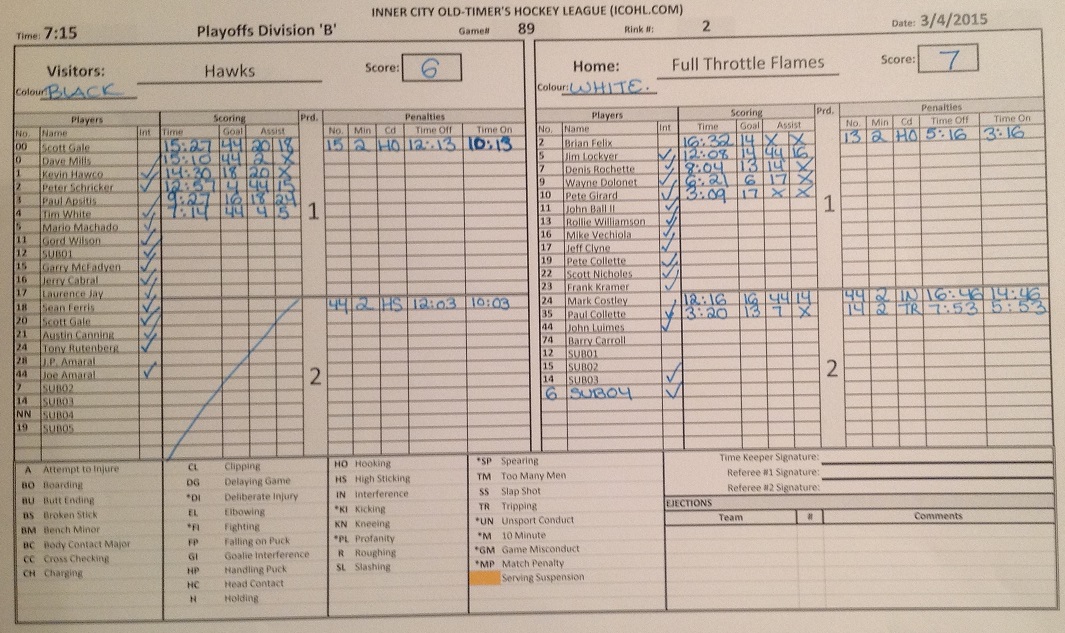 INNER CITY OLD-TIMER'S HOCKEY LEAGUE (ICOHL.COM)
Time: 7:15 Playoffs Division 'B' Game# 89 Rink #: 2 Date: 3/4/2015
Visitors: Hawks Score: 6
Colour: BLACK
Players Scoring Prd. Penalties
No. Name Int Time Goal Assist No. Min Cd Time Off Time On
00 Scott Gale 15:27 44 20 18 15 2 HO 12:13 10:13
0 Dave Mills 15:10 44 2 X
1 Kevin Hawco ✓ 14:30 18 20 X
2 Peter Schricker ✓ 12:57 4 44 15
3 Paul Apsitis 9:27 16 18 24
4 Tim White ✓ 7:14 44 4 5
1
5 Mario Machado ✓
11 Gord Wilson ✓
12 SUB01 ✓
15 Garry McFadyen ✓
16 Jerry Cabral ✓
17 Laurence Jay ✓
18 Sean Ferris ✓ 44 2 HS 12:03 10:03
20 Scott Gale ✓
21 Austin Canning ✓
24 Tony Rutenberg ✓
28 J.P. Amaral
44 Joe Amaral ✓
2
7 SUB02
14 SUB03
NN SUB04
19 SUB05
Home: Full Throttle Flames Score: 7
Colour: WHITE.
Players Scoring Prd. Penalties
No. Name Int Time Goal Assist No. Min Cd Time Off Time On
2 Brian Felix 16:32 14 X X 13 2 HO 5:16 3:16
5 Jim Lockyer ✓ 12:08 14 44 16
7 Denis Rochette ✓ 8:04 13 14 X
9 Wayne Dolonet ✓ 6:21 6 17 X
10 Pete Girard ✓ 3:09 17 X X
1
11 John Ball II ✓
13 Rollie Williamson ✓
16 Mike Vechiola ✓
17 Jeff Clyne ✓
19 Pete Collette ✓
22 Scott Nicholes ✓
23 Frank Kramer ✓
24 Mark Costley ✓ 12:16 16 44 14 44 2 IN 16:46 14:46
35 Paul Collette ✓ 3:20 13 7 X 14 2 TR 7:53 5:53
44 John Luimes ✓
74 Barry Carroll
12 SUB01
2
15 SUB02 ✓
14 SUB03 ✓
6 SUB04 ✓
A Attempt to Injure
BO Boarding
BU Butt Ending
BS Broken Stick
BM Bench Minor
BC Body Contact Major
CC Cross Checking
CH Charging
CL Clipping
DG Delaying Game
*DI Deliberate Injury
EL Elbowing
*FI Fighting
FP Falling on Puck
GI Goalie Interference
HP Handling Puck
HC Head Contact
H Holding
HO Hooking
HS High Sticking
IN Interference
*KI Kicking
KN Kneeing
*PL Profanity
R Roughing
SL Slashing
*SP Spearing
TM Too Many Men
SS Slap Shot
TR Tripping
*UN Unsport Conduct
*M 10 Minute
*GM Game Misconduct
*MP Match Penalty
Serving Suspension
Time Keeper Signature:
Referee #1 Signature:
Referee #2 Signature:
EJECTIONS
Team # Comments